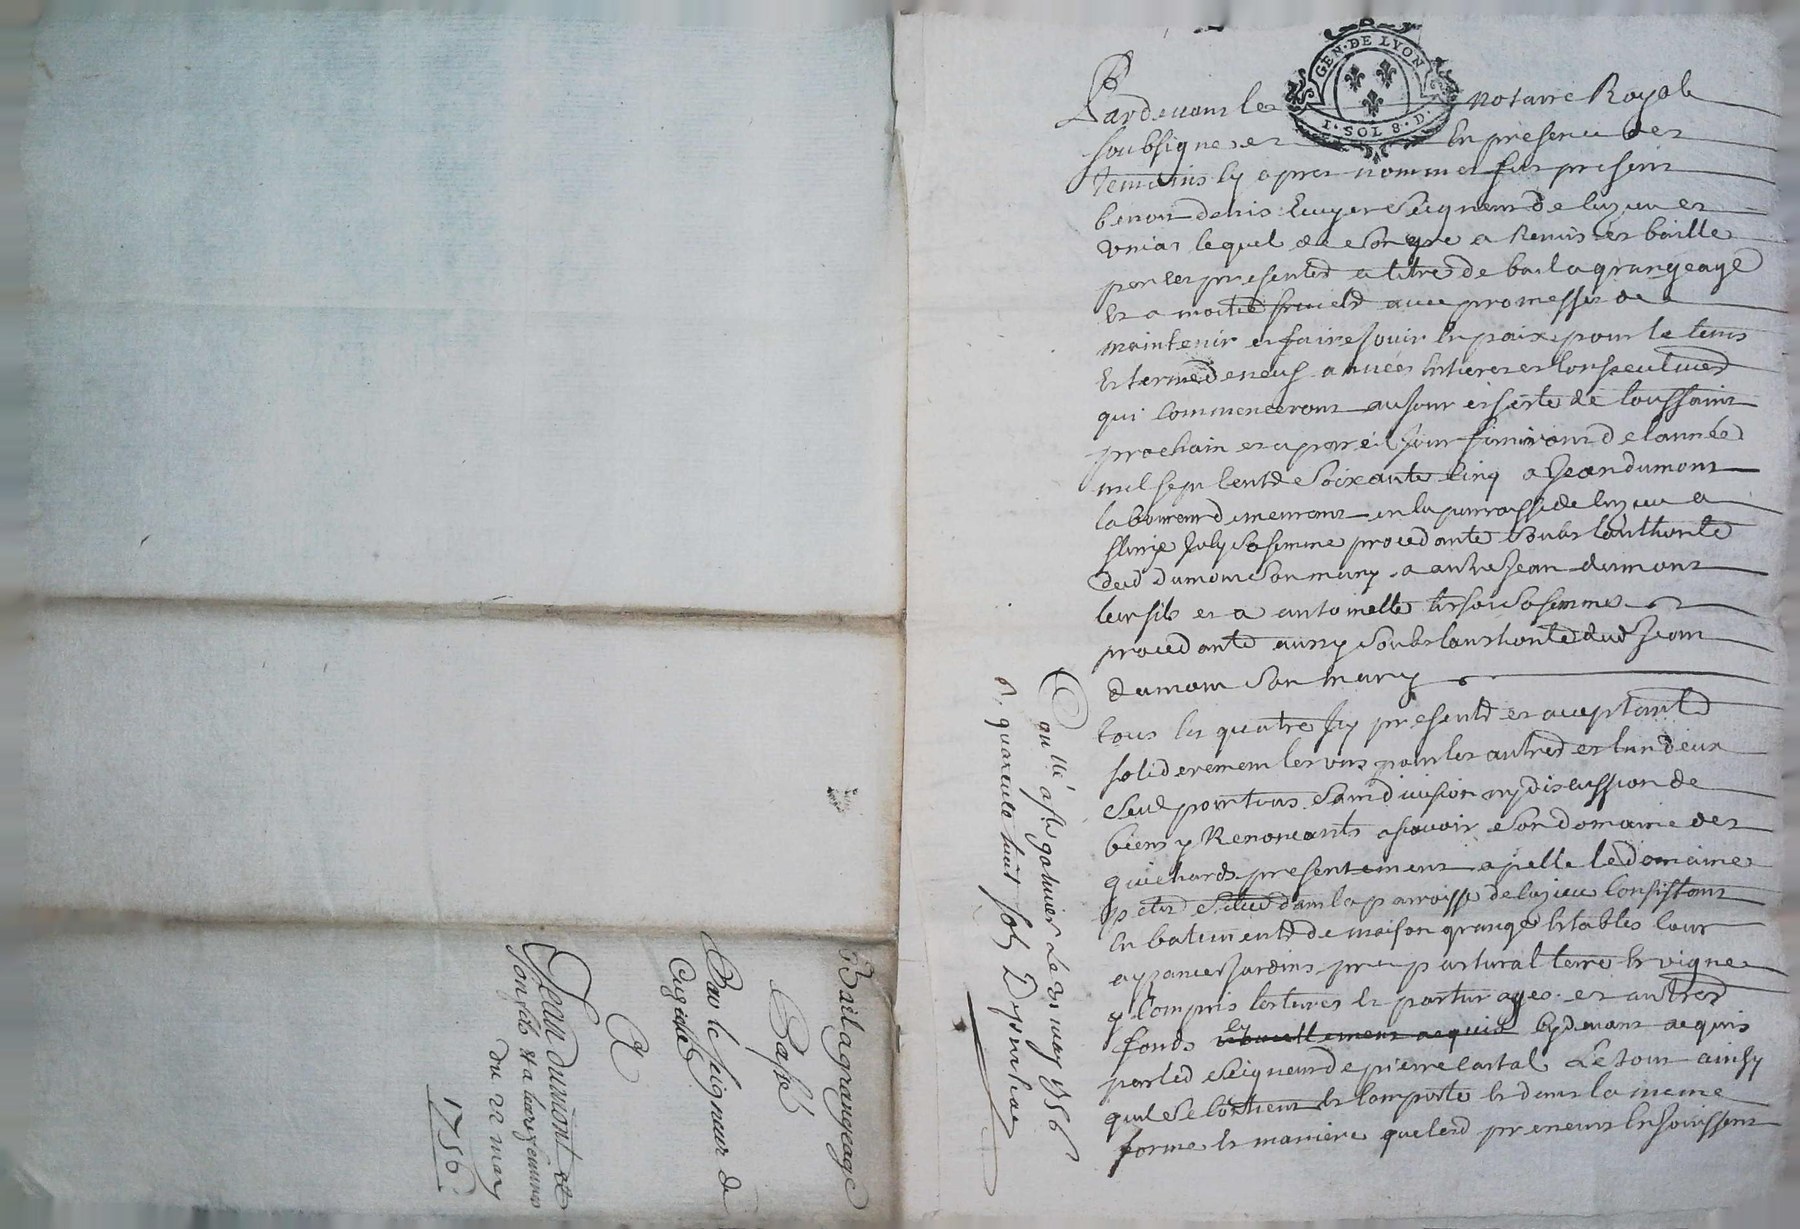 GEN·DE LYON
1·SOL 8·D·
Pardevant le notaire Royal
soubsigne et en presence des
temoins cy apres nommes fut present
benoit denis Ecuyer Seigneur de luzieu et
unias lequel de son gre a Remis et baille
par ces presentes a titre de bail a grangeage
et a moitie fruicts avec promesses de
maintenir et faire jouir en paix pour le tems
et terme de neuf années entieres et consecutives
qui commenceront au jour et feste de toussaint
prochain et a pareil jour finiront de lannée
mil sept cents soixante cinq a Jean dumont
laboureur demeurant en la parroisse de luzieu a
Joly sa femme procedante soubs lauthorité
dud dumont son mary, a autre jean dumont
leur fils et a antoinette sa femme
procedante aussy soubs lauthorité dud Jean
dumont son mary
tous les quatre Icy presents et acceptants
soliderement les uns pour les autres et lun deux
seul pour tous sans division ny discussion de
biens y Renonceants ascavoir son domaine des
guichards presentement apellé le domaine
petit situé dans la parroisse de luzieu consistant
en batiments de maison grange Etables cour
aysances Jardins pre pastural terre et vigne
y compris les terres et pasturages et autres
fonds cy devant acquis
par led seigneur de pierre cartal Le tout ainsy
quil se contient et comporte et dans la meme
forme et maniere que lesd preneurs en jouissent
quarante huit sols
Bail a grangeage
Passé
Par le seigneur de
Cuzieu
A
Jean dumont et
son fils et a leurs femmes
du 22 may
1756